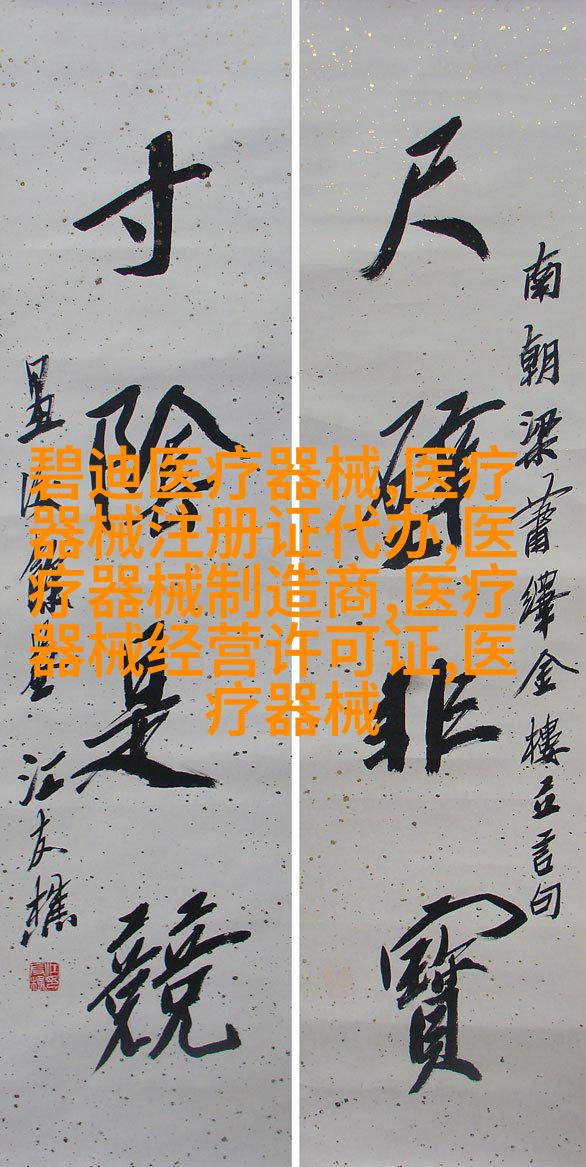 碧迪医疗器械,医疗
器械注册证代办,医
疗器械制造商,医疗
器械经营许可证,医
疗器械
尺璧非寶
南朝梁蕭繹金樓立言句
寸陰是競
汪友樵